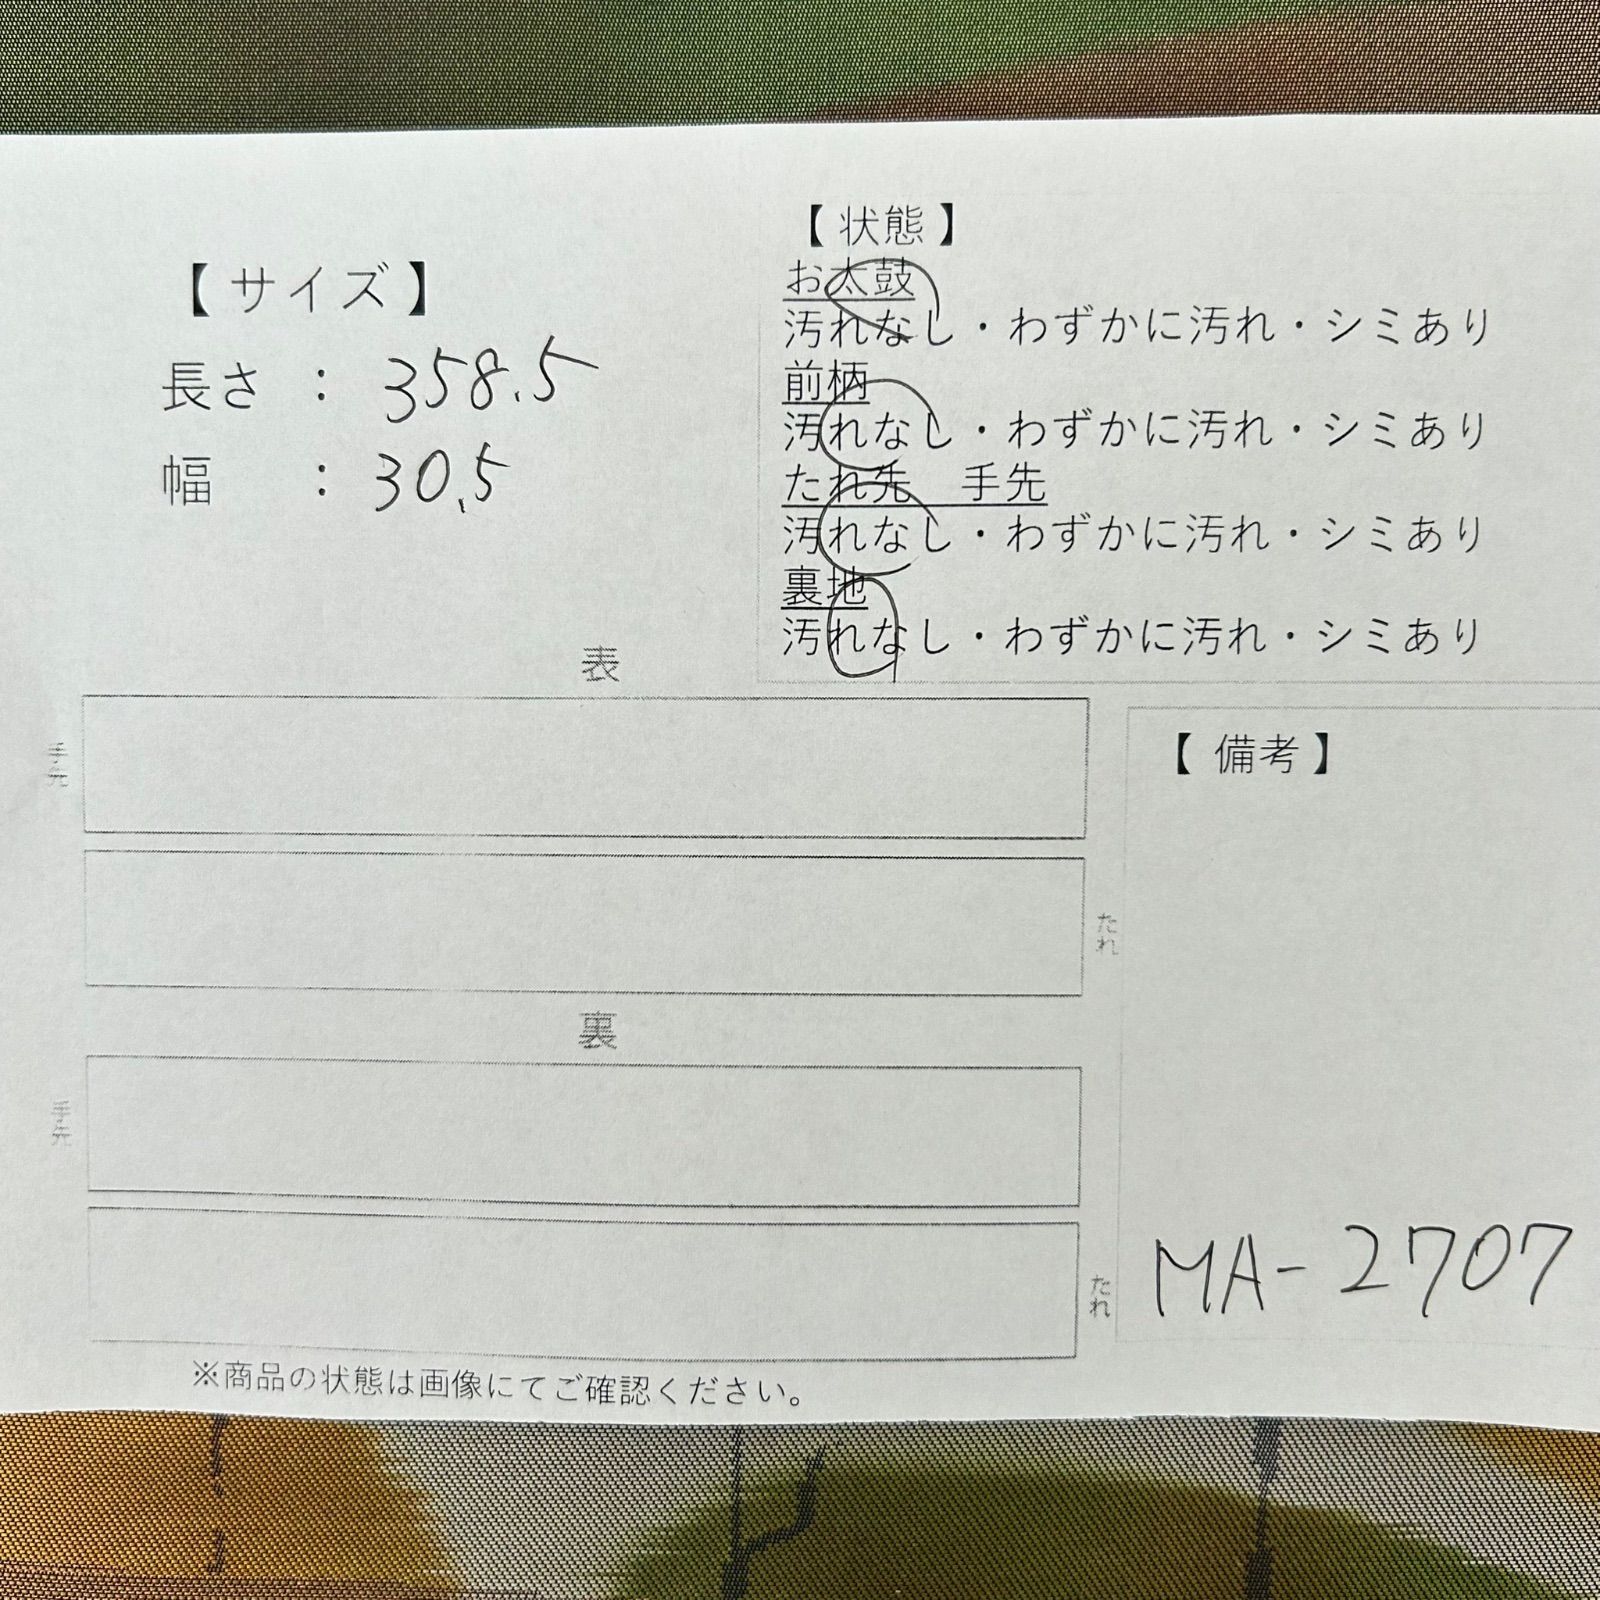 【サイズ】
長さ : 358.5
幅 : 30.5
【状態】
お太鼓
汚れなし・わずかに汚れ・シミあり
前柄
汚れなし・わずかに汚れ・シミあり
たれ先　手先
汚れなし・わずかに汚れ・シミあり
裏地
汚れなし・わずかに汚れ・シミあり
表
手先
たれ
裏
手先
たれ
【備考】
MA-2707
※商品の状態は画像にてご確認ください。